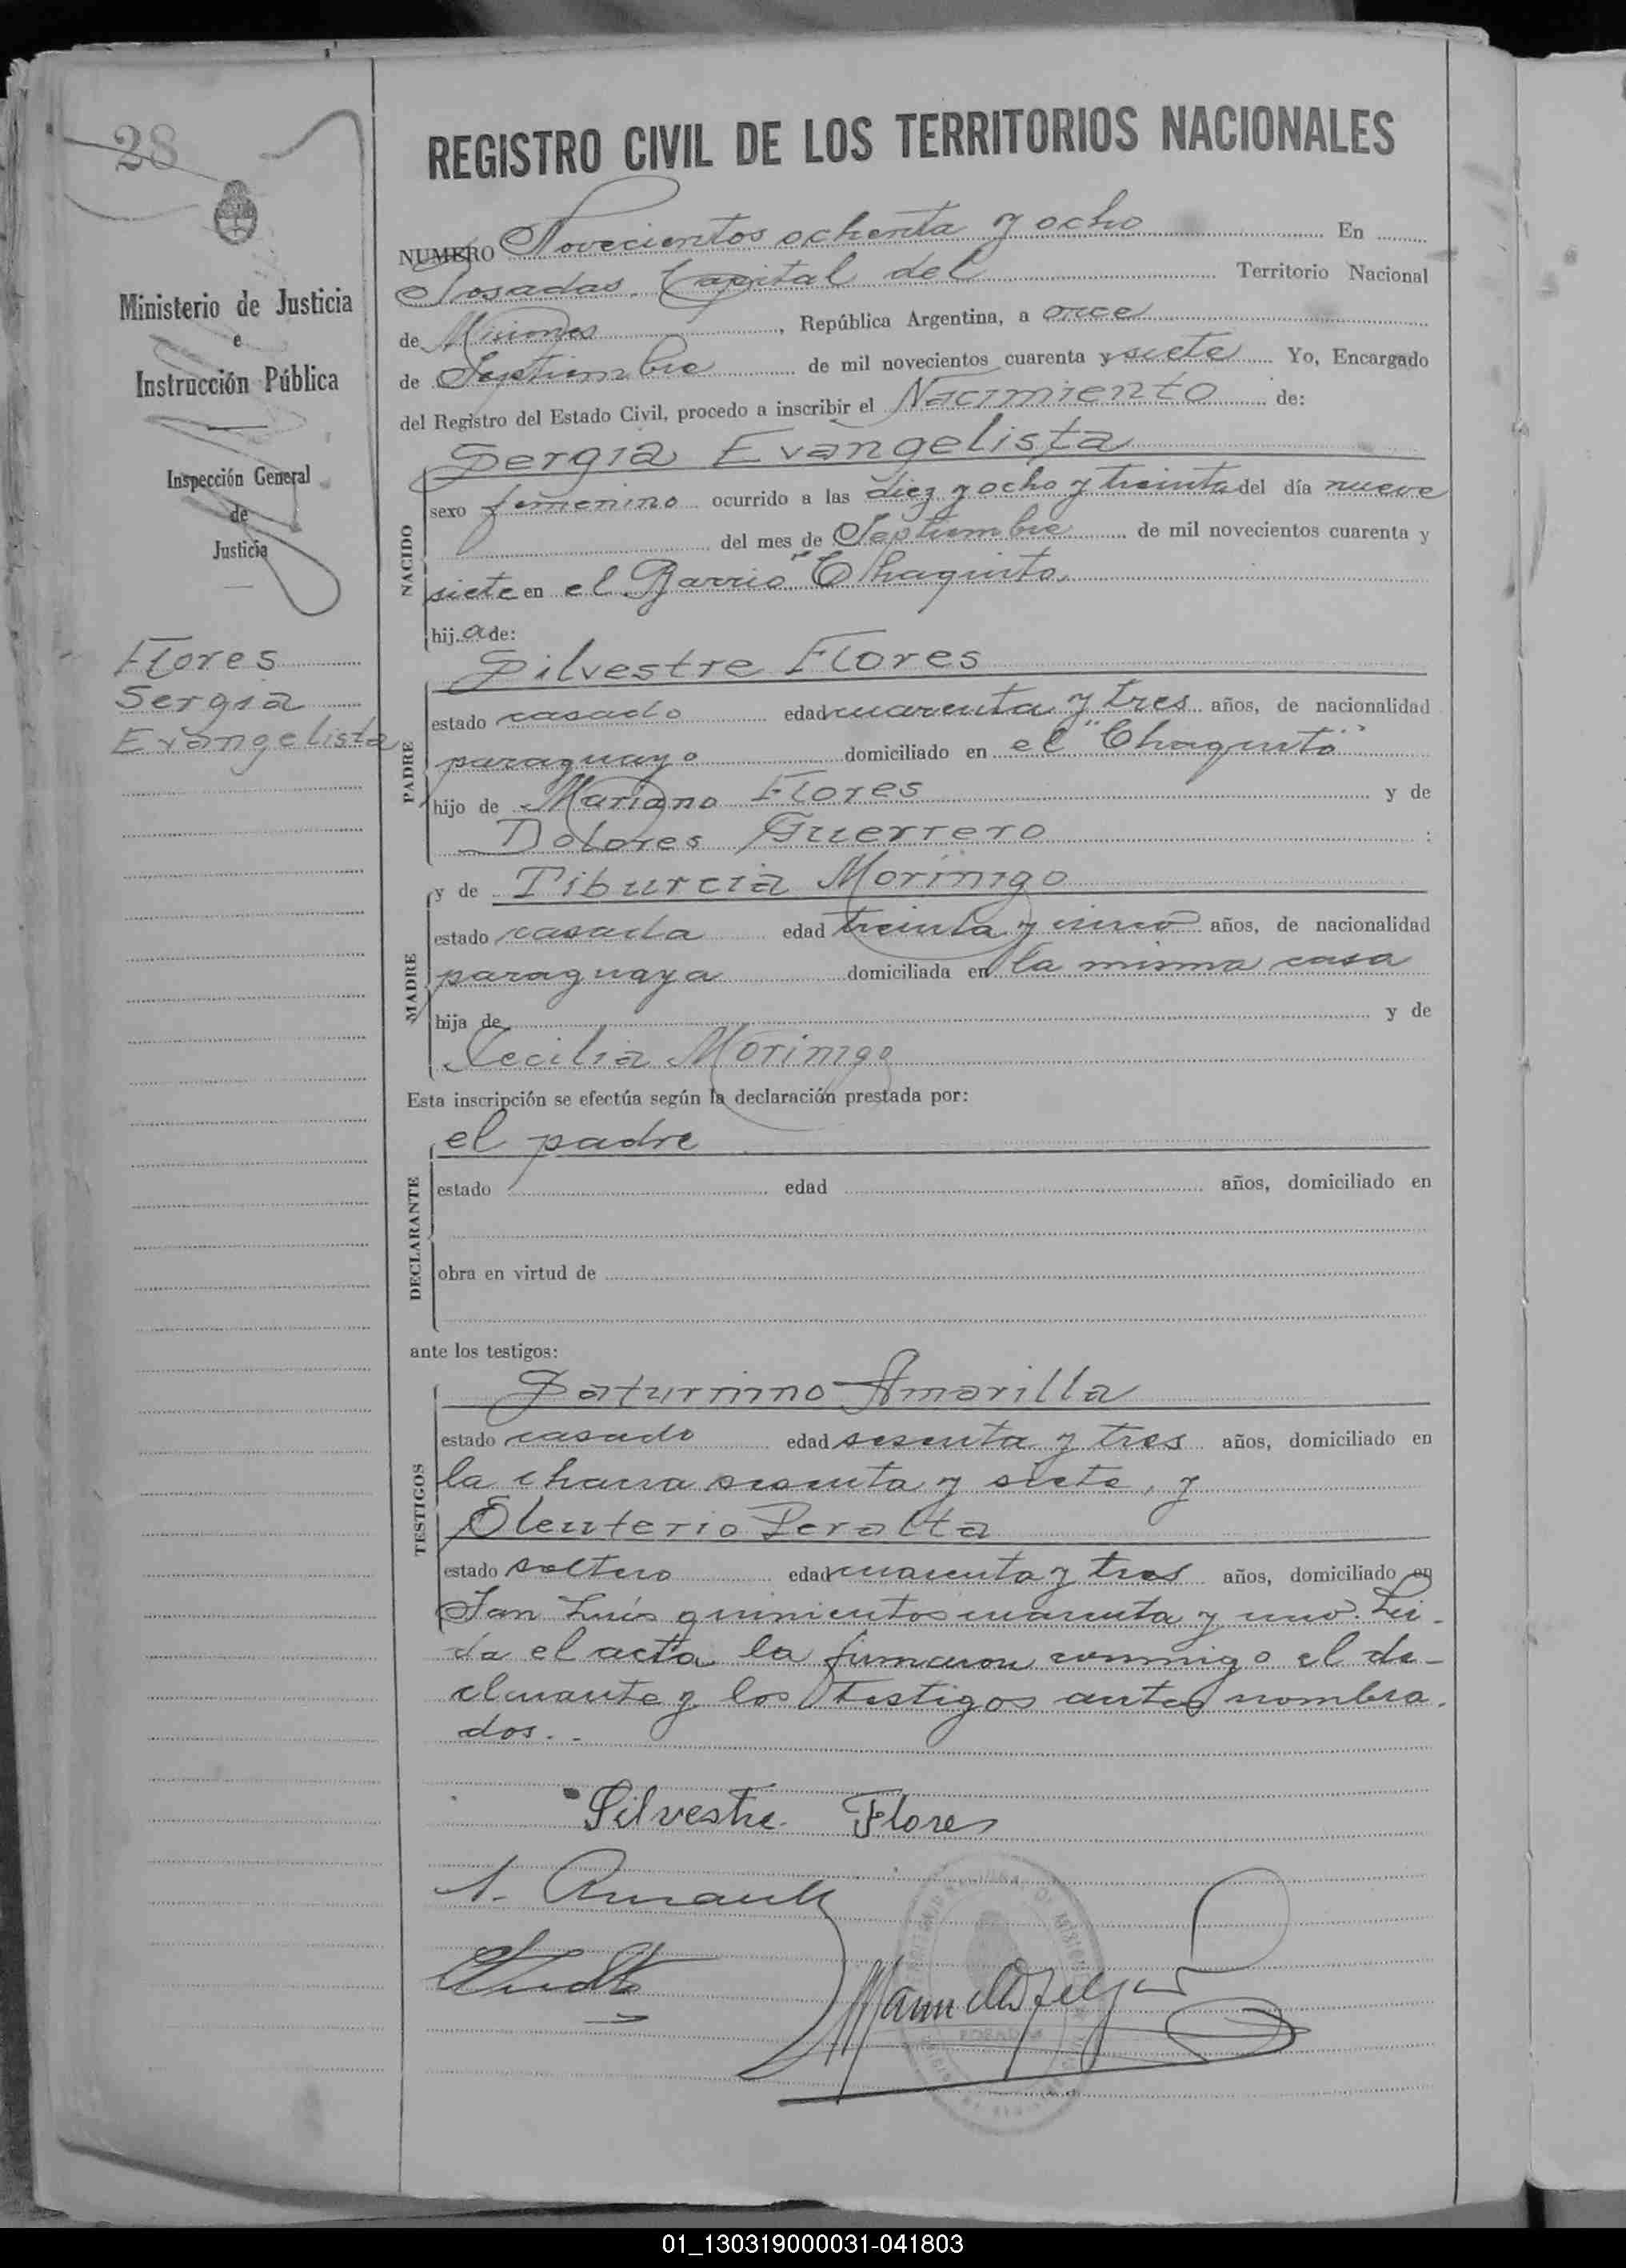 28
REGISTRO CIVIL DE LOS TERRITORIOS NACIONALES
Ministerio de Justicia
e
Instrucción Pública
Inspección General
de
Justicia
Flores
Sergia
Evangelista
NUMERO Novecientos ochenta y ocho En
Posadas, Capital del Territorio Nacional
de Misiones, República Argentina, a once
de Septiembre de mil novecientos cuarenta y siete Yo, Encargado
del Registro del Estado Civil, procedo a inscribir el Nacimiento de:
NACIDO
Sergia Evangelista
sexo femenino ocurrido a las diez y ocho y treinta del día nueve
del mes de Septiembre de mil novecientos cuarenta y
siete en el Barrio "Chaquito,
hija de:
PADRE
Silvestre Flores
estado casado edad cuarenta y tres años, de nacionalidad
paraguayo domiciliado en el "Chaquito"
hijo de Mariano Flores y de
Dolores Guerrero :
MADRE
y de Tiburcia Morinigo
estado casada edad treinta y cinco años, de nacionalidad
paraguaya domiciliada en la misma casa
hija de y de
Cecilia Morinigo
Esta inscripción se efectúa según la declaración prestada por:
DECLARANTE
el padre
estado edad años, domiciliado en
obra en virtud de
ante los testigos:
TESTIGOS
Saturnino Amarilla
estado casado edad sesenta y tres años, domiciliado en
la chacra sesenta y siete, y
Eleuterio Peralta
estado soltero edad cuarenta y tres años, domiciliado en
San Luis quinientos cuarenta y uno. Lei-
da el acta la firmaron conmigo el de-
clarante y los testigos antes nombra-
dos.-
Silvestre Flores
POSADAS
01_130319000031-041803